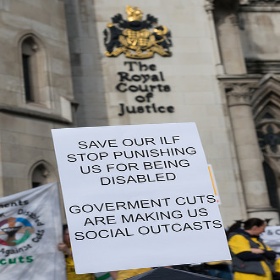 The
Royal
Courts
of
Justice
SAVE OUR ILF
STOP PUNISHING
US FOR BEING
DISABLED
GOVERMENT CUTS
ARE MAKING US
SOCIAL OUTCASTS
Against
cuts